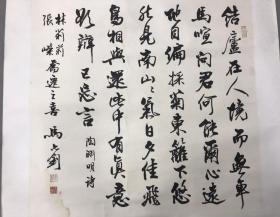 結廬在人境而無車
馬喧問君何能爾心遠
地自偏採菊東籬下悠
然見南山山氣日夕佳飛
鳥相與還此中有真意
欲辯已忘言 陶淵明詩
林莉莉
張 喬遷之喜 馬